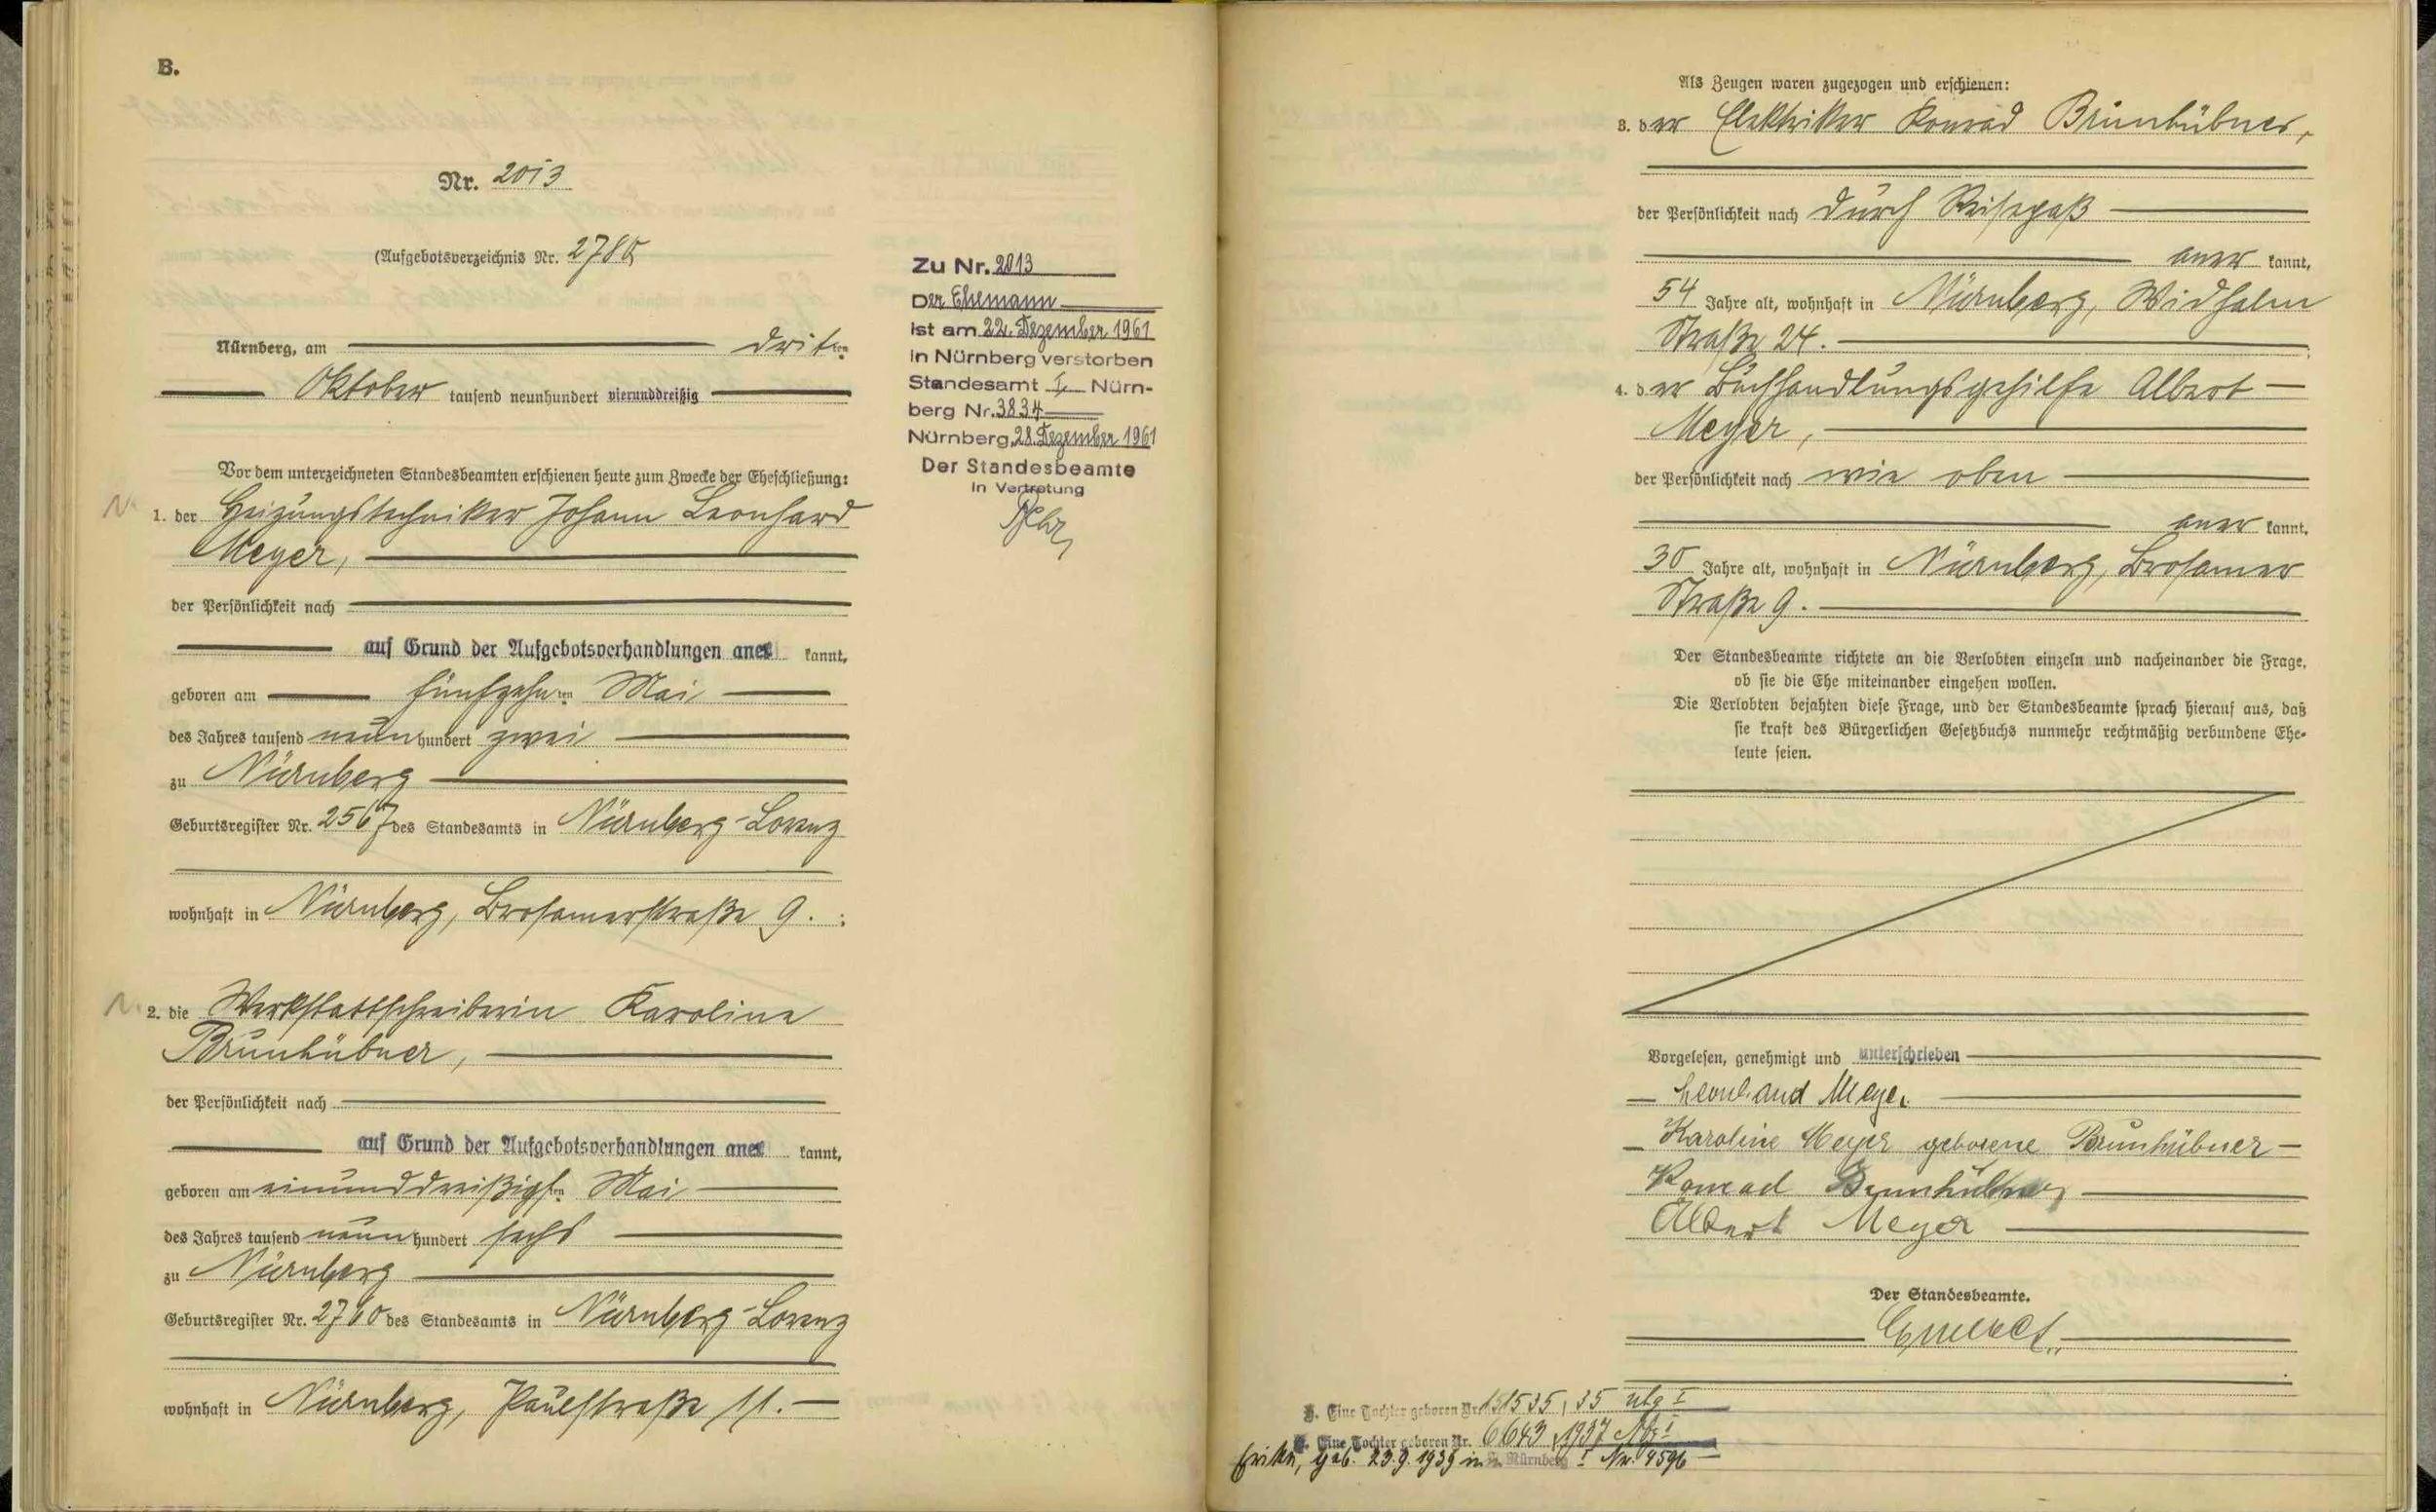 B.
Nr. 2013
(Aufgebotsverzeichnis Nr. 2785
Nürnberg, am dritten
Oktober tausend neunhundert vierunddreißig
Vor dem unterzeichneten Standesbeamten erschienen heute zum Zwecke der Eheschließung:
1. der Heizungstechniker Johann Leonhard
Meyer,
der Persönlichkeit nach
auf Grund der Aufgebotsverhandlungen aner kannt,
geboren am fünfzehnten Mai
des Jahres tausend neunhundert zwei
zu Nürnberg
Geburtsregister Nr. 2567 des Standesamts in Nürnberg-Lorenz
wohnhaft in Nürnberg, Brosamerstraße 9. ;
2. die Werkstattschreiberin Karoline
Brunhübner,
der Persönlichkeit nach
auf Grund der Aufgebotsverhandlungen aner kannt,
geboren am einunddreißigsten Mai
des Jahres tausend neunhundert sechs
zu Nürnberg
Geburtsregister Nr. 2760 des Standesamts in Nürnberg-Lorenz
wohnhaft in Nürnberg, Paulstraße 11.
Zu Nr. 2013
Der Ehemann
ist am 22. Dezember 1961
in Nürnberg verstorben
Standesamt I Nürn-
berg Nr. 3834
Nürnberg, 28. Dezember 1961
Der Standesbeamte
In Vertretung
Als Zeugen waren zugezogen und erschienen:
3. der Elektriker Konrad Brunhübner,
der Persönlichkeit nach durch Reisepaß
aner kannt,
54 Jahre alt, wohnhaft in Nürnberg, Widhalm
Straße 24.
4. der Buchhandlungsgehilfe Albert
Meyer,
der Persönlichkeit nach wie oben
aner kannt.
30 Jahre alt, wohnhaft in Nürnberg, Brosamer
Straße 9.
Der Standesbeamte richtete an die Verlobten einzeln und nacheinander die Frage,
ob sie die Ehe miteinander eingehen wollen.
Die Verlobten bejahten diese Frage, und der Standesbeamte sprach hierauf aus, daß
sie kraft des Bürgerlichen Gesetzbuchs nunmehr rechtmäßig verbundene Ehe-
leute seien.
Vorgelesen, genehmigt und unterschrieben
Leonhard Meyer
Karoline Meyer geborene Brunhübner
Konrad Brunhübner
Albert Meyer
Der Standesbeamte.
Eine Tochter geboren Nr. 35 Nbg I
Eine Tochter geboren Nr. 6643, 1937 Nbg I
Erika, geb. 23.9.1939 in Nürnberg I Nr. 9596